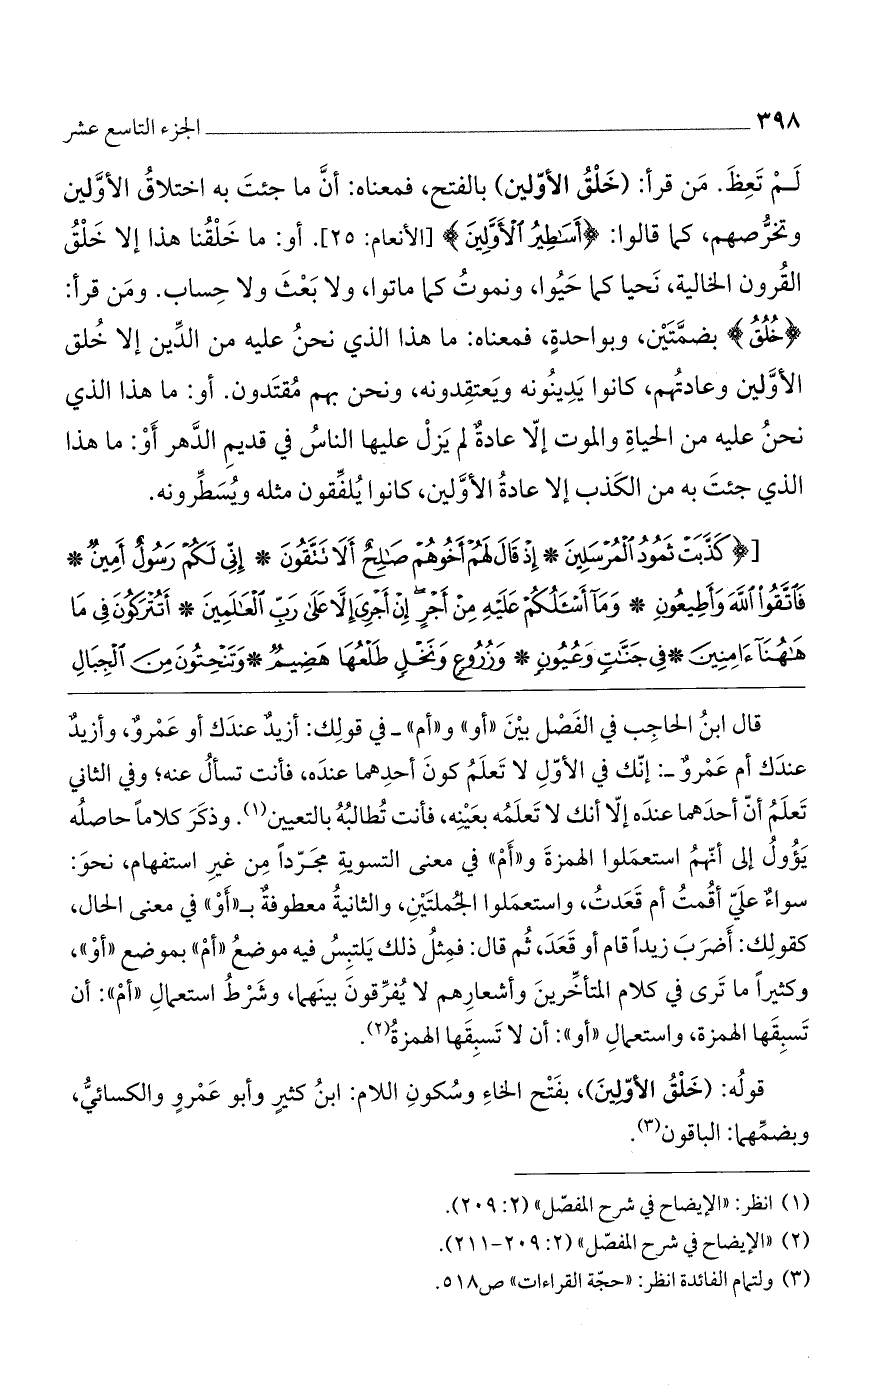 ٣٩٨ الجزء التاسع عشر
لَـمْ تَعِظَ. مَن قرأ: (خَلْقُ الأوّلين) بالفتح، فمعناه: أنَّ ما جئتَ به اختلاقُ الأوَّلين
وتخرُّصهم، كما قالوا: ﴿أَسَٰطِيرُ ٱلْأَوَّلِينَ﴾ [الأنعام: ٢٥]. أو: ما خَلْقُنا هذا إلا خَلْقُ
القُرون الخالية، نَحيا كما حَيُوا، ونموتُ كما ماتوا، ولا بَعْثَ ولا حِساب. ومَن قرأ:
﴿خُلُقُ﴾ بضمَّتَيْن، وبواحدةٍ، فمعناه: ما هذا الذي نحنُ عليه من الدِّين إلا خُلق
الأوَّلين وعادتُهم، كانوا يَدِينُونه ويَعتقِدونه، ونحن بهم مُقتَدون. أو: ما هذا الذي
نحنُ عليه من الحياةِ والموت إلّا عادةٌ لم يَزلْ عليها الناسُ في قديمِ الدَّهر أَوْ: ما هذا
الذي جئتَ به من الكَذب إلا عادةُ الأوَّلين، كانوا يُلفِّقون مثله ويُسَطِّرونه.
[﴿كَذَّبَتْ ثَمُودُ ٱلْمُرْسَلِينَ * إِذْ قَالَ لَهُمْ أَخُوهُمْ صَٰلِحٌ أَلَا تَتَّقُونَ * إِنِّى لَكُمْ رَسُولٌ أَمِينٌ *
فَٱتَّقُوا۟ ٱللَّهَ وَأَطِيعُونِ * وَمَآ أَسْـَٔلُكُمْ عَلَيْهِ مِنْ أَجْرٍ ۖ إِنْ أَجْرِىَ إِلَّا عَلَىٰ رَبِّ ٱلْعَٰلَمِينَ * أَتُتْرَكُونَ فِى مَا
هَٰهُنَآ ءَامِنِينَ * فِى جَنَّٰتٍ وَعُيُونٍ * وَزُرُوعٍ وَنَخْلٍ طَلْعُهَا هَضِيمٌ * وَتَنْحِتُونَ مِنَ ٱلْجِبَالِ
قال ابنُ الحاجِب في الفَصْل بيْنَ «أو» و«أم» ـ في قولِك: أزيدٌ عندَك أو عَمْروٌ، وأزيدٌ
عندَك أم عَمْروٌ ـ: إنّك في الأوّلِ لا تَعلَمُ كونَ أحدِهما عندَه، فأنت تسألُ عنه؛ وفي الثاني
تَعلَمُ أنّ أحدَهما عندَه إلّا أنك لا تَعلَمُه بعَيْنِه، فأنت تُطالبُهُ بالتعيين(١). وذكَرَ كلاماً حاصلُه
يَؤُولُ إلى أنّهمُ استعمَلوا الهمزةَ و«أَمْ» في معنى التسويةِ مجَرّداً مِن غيرِ استفهام، نحوَ:
سواءٌ عليَّ أقُمتُ أم قَعَدتُ، واستعمَلوا الجُملتَيْنِ، والثانيةُ معطوفةٌ بـ«أَوْ» في معنى الحال،
كقولِك: أضرَبَ زيداً قام أو قَعَدَ، ثُم قال: فمِثلُ ذلك يَلتبِسُ فيه موضعُ «أمْ» بموضع «أوْ»،
وكثيراً ما تَرى في كلام المتأخِّرينَ وأشعارِهم لا يُفرِّقونَ بينَهما، وشَرْطُ استعمالِ «أمْ»: أن
تَسبِقَها الهمزة، واستعمالِ «أو»: أن لا تَسبِقَها الهمزةُ(٢).
قولُه: (خَلْقُ الأوّلِينَ)، بفَتْح الخاءِ وسُكونِ اللام: ابنُ كثيرٍ وأبو عَمْروٍ والكسائيُّ،
وبضمِّهما: الباقون(٣).
(١) انظر: «الإيضاح في شرح المفصّل» (٢: ٢٠٩).
(٢) «الإيضاح في شرح المفصّل» (٢: ٢٠٩-٢١١).
(٣) ولتمام الفائدة انظر: «حجّة القراءات» ص٥١٨.